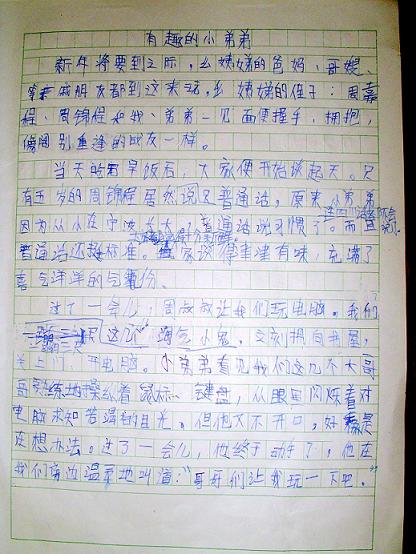 有趣的小弟弟
新年将要到之际，幺姨娣的爸妈、哥嫂、
戚朋友都到这来玩。幺姨娣的侄子：周嘉
程、周锦程和我、弟弟一见面便握手，拥抱，
像阔别重逢的战友一样。
当天的早饭后，大家便开始谈起天。只
有五岁的周锦程居然说口普通话，原来小弟弟
因为从小在宁波长大，普通话说习惯了。而且
普通话还挺标准。大家谈得津津有味，充满了
喜气洋洋的气氛。
过了一会儿，周叔叔让我们玩电脑。我们
这几 淘气小鬼，立刻拥向书屋，
关上门 开电脑。小弟弟看见我们这几个大哥
哥熟练地操纵着鼠标、键盘，从眼里闪烁着对
电脑求知若渴的目光。但他又不开口，好像是
在想办法。过了一会儿，他终于动手了，他在
我们旁边温柔地叫道：“哥哥们让我玩一下吧。”